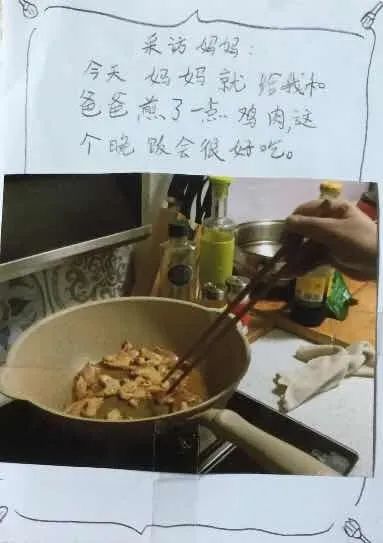 采访妈妈：
今天妈妈就给我和
爸爸煎了一点鸡肉,这
个晚饭会很好吃。